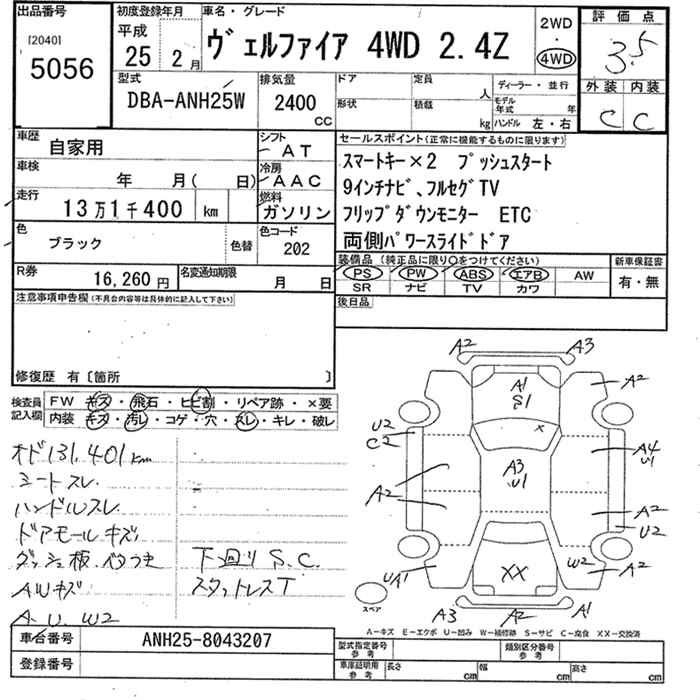 出品番号
[2040]
5056
初度登録年月
平成
25 2月
車名・グレード
ヴェルファイア 4WD 2.4Z
2WD
・
4WD
評価点
3.5
外装 内装
C C
型式
DBA-ANH25W
排気量
2400
CC
ドア
定員
人
形状
積載
kg
ディーラー・並行
モデル年式
年
ハンドル 左・右
車歴
自家用
シフト
AT
車検
年 月( 日)
冷房
AAC
走行
13万1千400 km
燃料
ガソリン
色
ブラック
色替
色コード
202
R券
16,260円
名変通知期限
月 日
セールスポイント(正常に機能するものに限ります)
スマートキー×2 プッシュスタート
9インチナビ、フルセグTV
フリップダウンモニター ETC
両側パワースライドドア
装備品(純正品に限り○をつけてください)
PS PW ABS エアB AW
SR ナビ TV カワ
新車保証書
有・無
後日品
注意事項申告欄(不具合内容等は具体的に記入して下さい)
修復歴 有〔箇所 〕
検査員
記入欄
FW キズ・飛石・ヒビ割・リペア跡・×要
内装 キズ・汚レ・コゲ・穴・スレ・キレ・破レ
オド131,401km
シートスレ
ハンドルスレ
ドアモールキズ
ダッシュ板ベタつき
AWキズ
A.U.W2
下回りS.C.
スタットレスT
A2 A3
A1
S1
A2
A2
U2
C2
×
A3
U1
A4
U1
A2
A2
U2
UA1
XX
W2
A2
A3 A2 A1
スペア
A-キズ E-エクボ U-凹み W-補修跡 S-サビ C-腐食 XX-交換済
車台番号
ANH25-8043207
登録番号
型式指定番号
参考
類別区分番号
参考
車庫証明用
参考
長さ cm
幅 cm
高さ cm